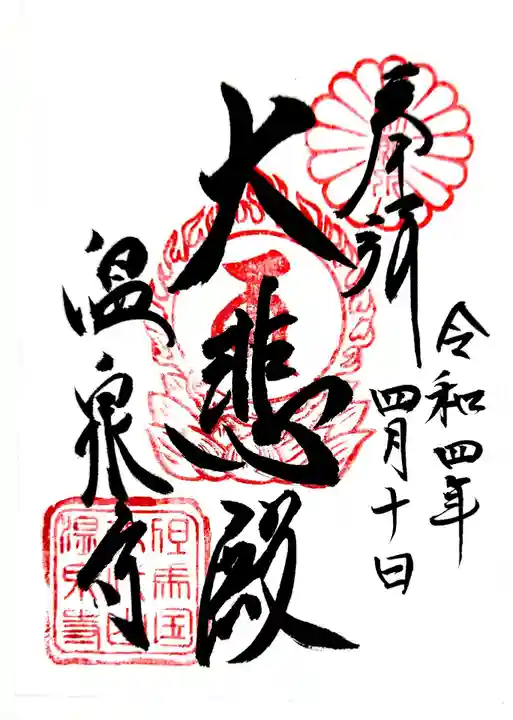 奉拝
令和四年
四月十日
大悲殿
温泉寺
但馬国
温泉寺